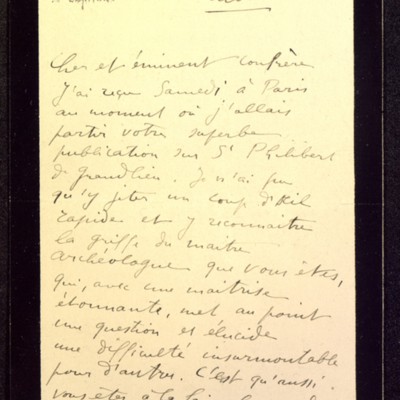 Cher et éminent confrère
J'ai reçu Samedi à Paris
au moment où j'allais
partir votre superbe
publication sur St Philibert
de Grandlieu. Je n'ai pu
qu'y jeter un coup d'œil
rapide et y reconnaitre
la griffe du maitre
archéologue que vous êtes,
qui, avec une maitrise
étonnante, met au point
une question et élucide
une difficulté insurmontable
pour d'autres. C'est qu'aussi
vous êtes à la fois